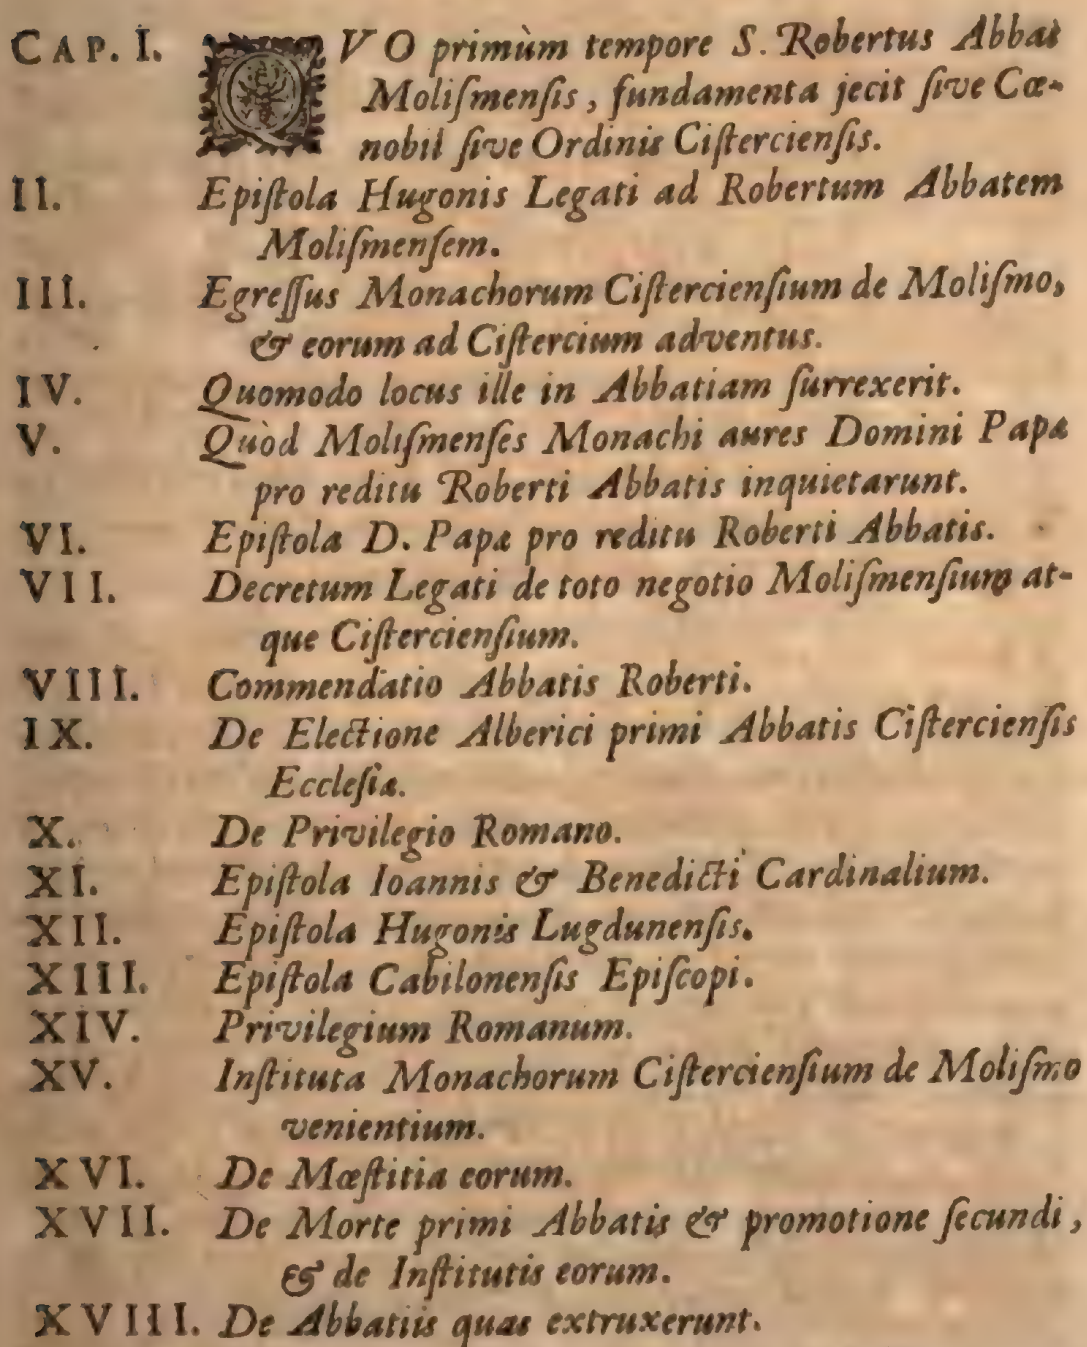 CAP. I. QVO primùm tempore S. Robertus Abbas
Moliſmenſis, fundamenta jecit ſive Cœ-
nobii ſive Ordinis Ciſtercienſis.
II. Epiſtola Hugonis Legati ad Robertum Abbatem
Moliſmenſem.
III. Egreſſus Monachorum Ciſtercienſium de Moliſmo,
& eorum ad Ciſtercium adventus.
IV. Quomodo locus ille in Abbatiam ſurrexerit.
V. Quòd Moliſmenſes Monachi aures Domini Papæ
pro reditu Roberti Abbatis inquietarunt.
VI. Epiſtola D. Papæ pro reditu Roberti Abbatis.
VII. Decretum Legati de toto negotio Moliſmenſium at-
que Ciſtercienſium.
VIII. Commendatio Abbatis Roberti.
IX. De Electione Alberici primi Abbatis Ciſtercienſis
Eccleſiæ.
X. De Privilegio Romano.
XI. Epiſtola Ioannis & Benedicti Cardinalium.
XII. Epiſtola Hugonis Lugdunenſis.
XIII. Epiſtola Cabilonenſis Epiſcopi.
XIV. Privilegium Romanum.
XV. Inſtituta Monachorum Ciſtercienſium de Moliſmo
venientium.
XVI. De Mœſtitia eorum.
XVII. De Morte primi Abbatis & promotione ſecundi,
& de Inſtitutis eorum.
XVIII. De Abbatiis quas extruxerunt.